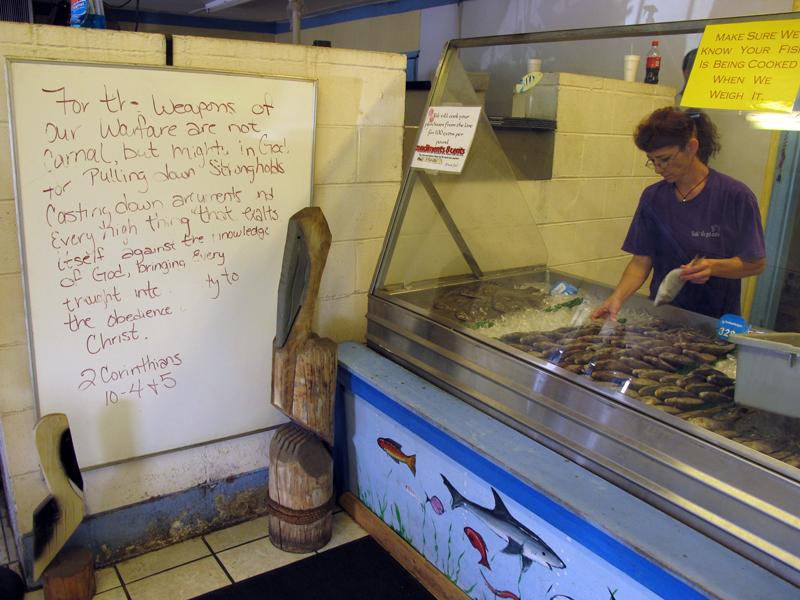 For the Weapons of
our Warfare are not
Carnal, but mighty in God
for Pulling down Strongholds
Casting down arguments nd
Every high thing that exalts
itself against the knowledge
of God, bringing Every
thought into ty to
the obedience
Christ.
2 Corinthians
10-4 &5
We will cook your
for 1.00 extra per
pound
MAKE SURE WE
KNOW YOUR FISH
IS BEING COOKED
WHEN WE
WEIGH IT.